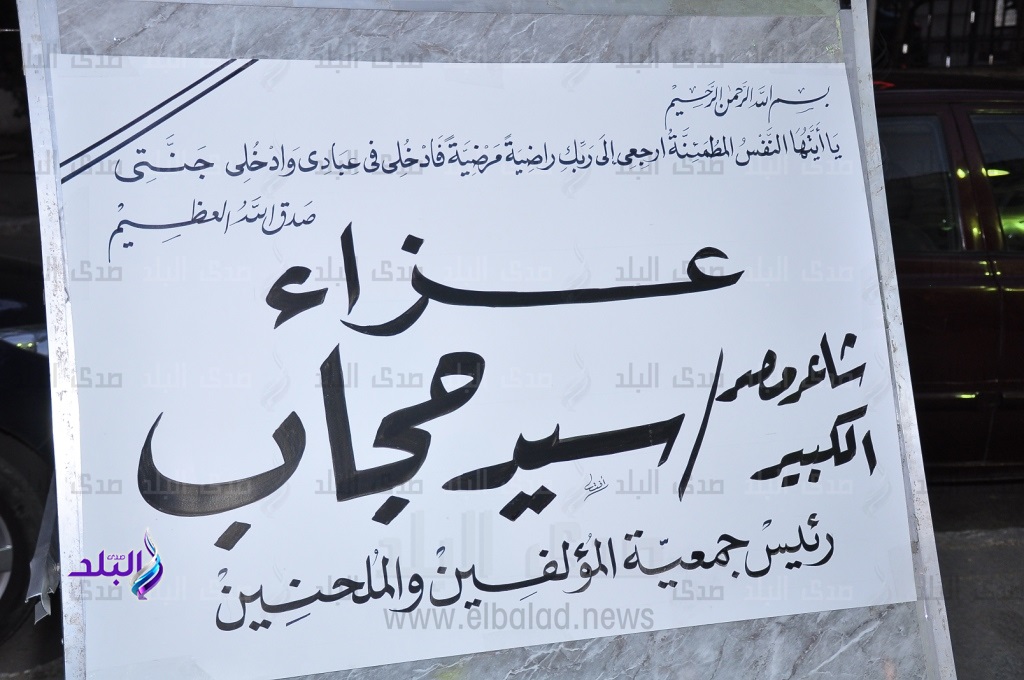 بسم الله الرحمن الرحيم
يا أيتها النفس المطمئنة ارجعى إلى ربك راضية مرضية فادخلى فى عبادى وادخلى جنتى
صدق الله العظيم
عزاء
شاعر مصر الكبير / سيد حجاب
رئيس جمعية المؤلفين والملحنين
صدى البلد
www.elbalad.news